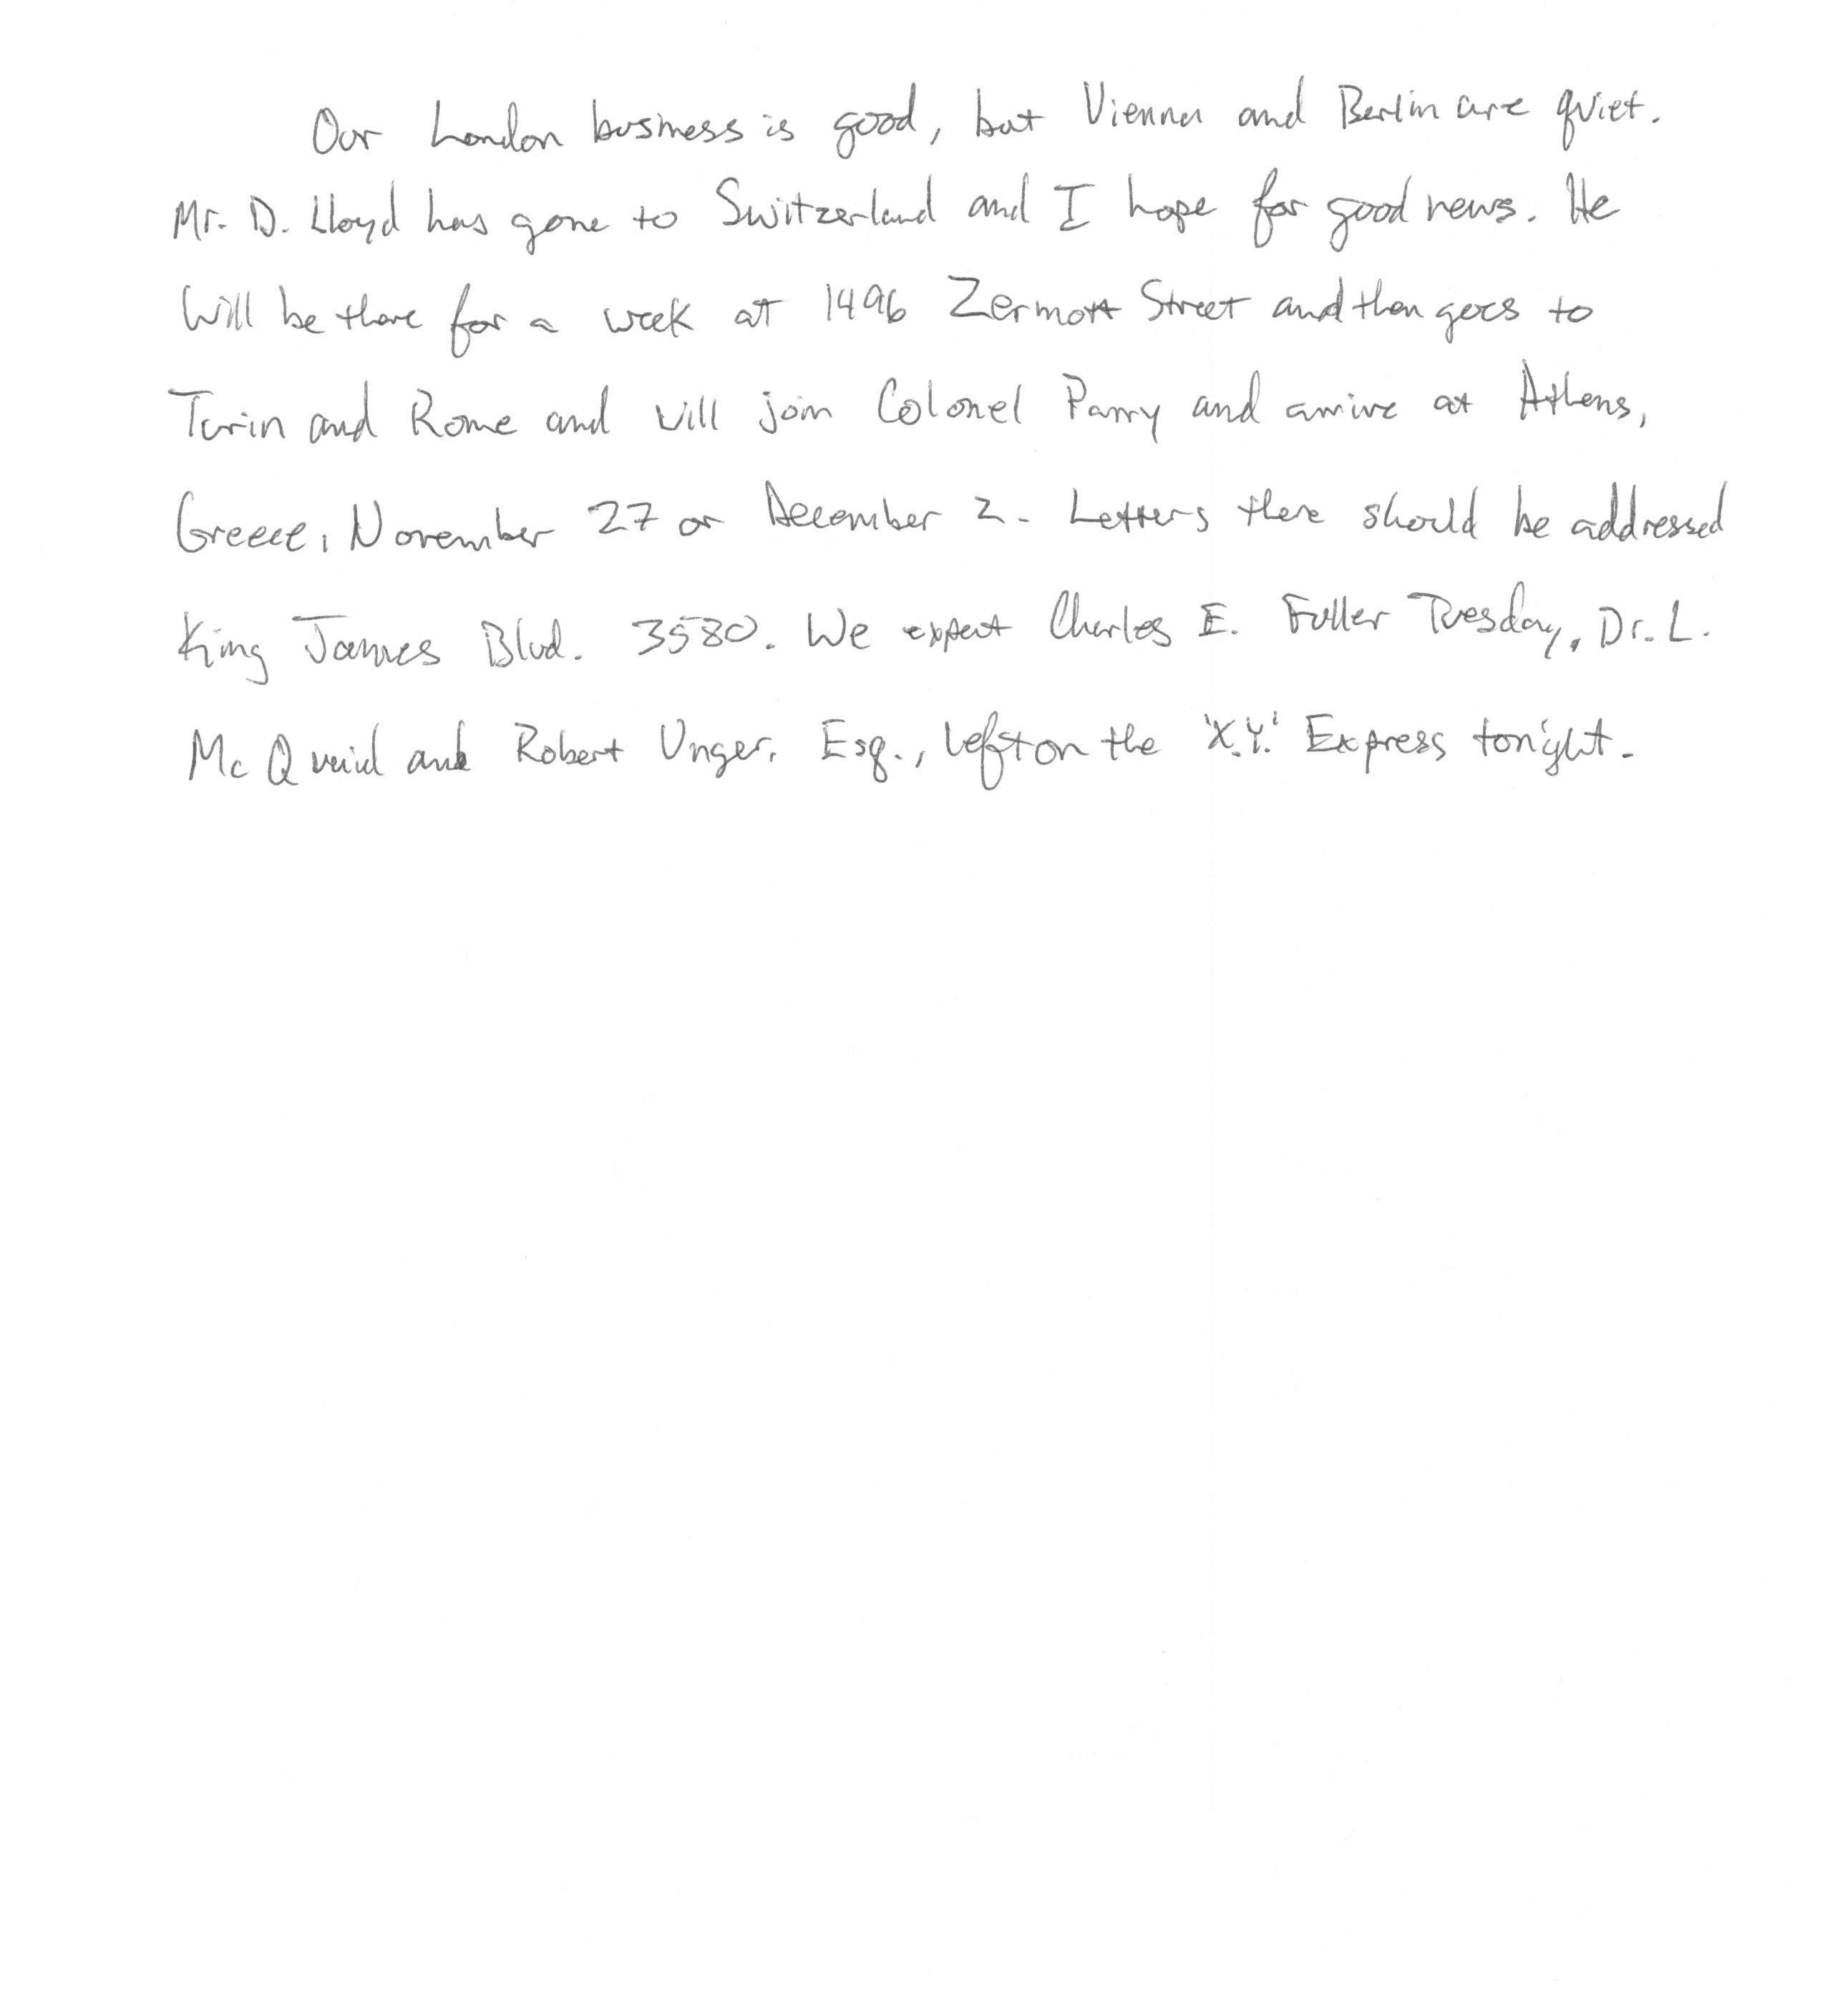 Our London business is good, but Vienna and Berlin are quiet.
Mr. D. Lloyd has gone to Switzerland and I hope for good news. He
will be there for a week at 1496 Zermott Street and then goes to
Turin and Rome and will join Colonel Parry and arrive at Athens,
Greece, November 27 or December 2. Letters there should be addressed
King James Blvd. 3580. We expect Charles E. Fuller Tuesday, Dr. L.
McQuaid and Robert Unger, Esq., left on the 'X.Y.' Express tonight.